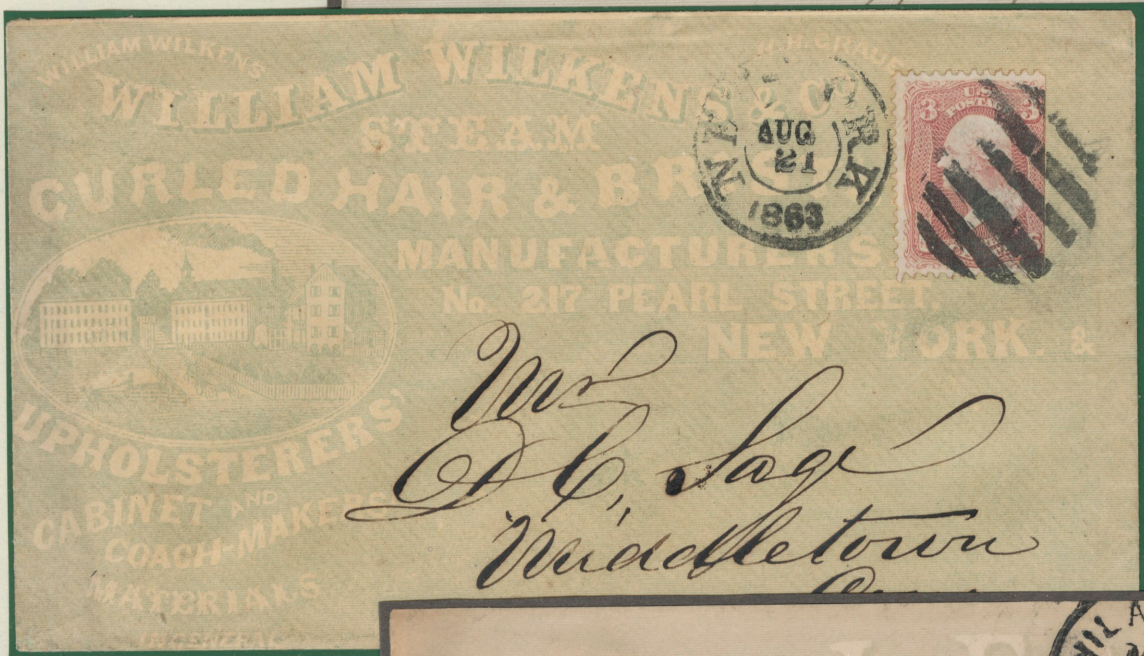 WILLIAM WILKENS
WILLIAM WILKENS & CO
STEAM
CURLED HAIR &
MANUFACTURERS
No. 217 PEARL STREET,
NEW YORK. &
UPHOLSTERERS'
CABINET AND
COACH-MAKERS
MATERIALS
NEW YORK
AUG
21
1863
3 3
U.S.
POSTAGE
Mr
Sage
Middletown